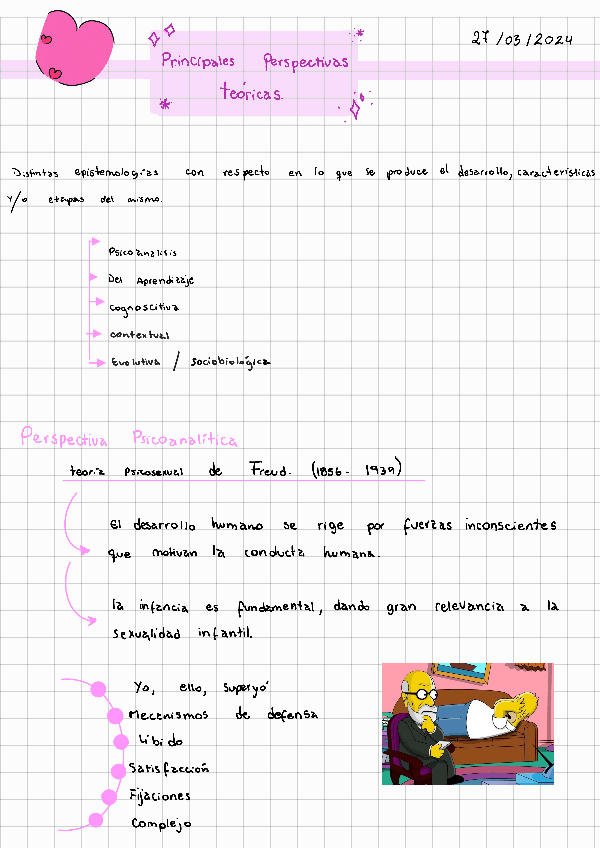 27/03/2024
Principales Perspectivas
teóricas.
Distintas epistemologías con respecto en lo que se produce el desarrollo, características
Y/o etapas del mismo.
Psicoanálisis
Del Aprendizaje
cognoscitiva
contextual
Evolutiva / Sociobiológica
Perspectiva Psicoanalítica
teoría Psicosexual de Freud. (1856 - 1939)
El desarrollo humano se rige por fuerzas inconscientes
que motivan la conducta humana.
la infancia es fundamental, dando gran relevancia a la
sexualidad infantil.
Yo, ello, superyó
Mecenismos de defensa
Libido
Satisfacción
Fijaciones
Complejo